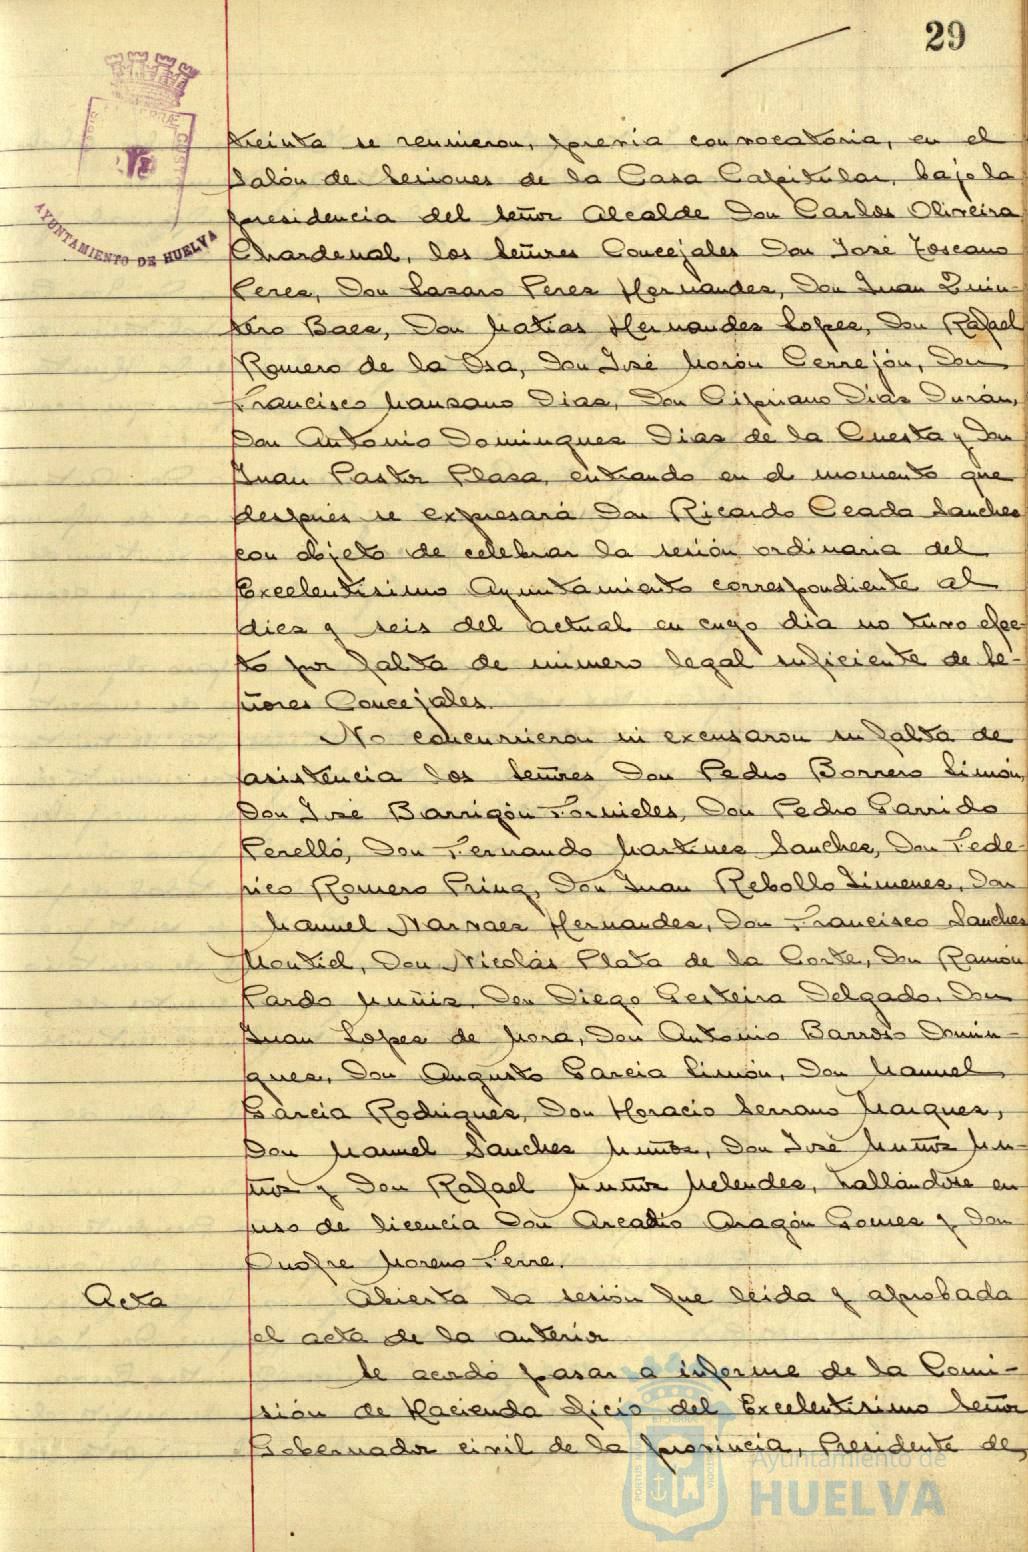 29
AYUNTAMIENTO DE HUELVA
treinta se reunieron, previa convocatoria, en el
Salón de Sesiones de la Casa Capitular, bajo la
presidencia del Señor Alcalde Don Carlos Oliveira
Chardenal, los Señores Concejales Don José Toscano
Peres, Don Lasaro Peres Hernandes, Don Juan Quin-
tero Baes, Don Matias Hernandes Lopes, Don Rafael
Romero de la Osa, Don José Morón Cerrejón, Don
Francisco Mansano Dias, Don Cipriano Dias Durán,
Don Antonio Domingues Dias de la Cuesta y Don
Juan Pastor Plasa, entrando en el momento que
después se expresará Don Ricardo Ceada Sanches
con objeto de celebrar la sesión ordinaria del
Excelentísimo Ayuntamiento correspondiente al
dies y seis del actual en cuyo dia no tuvo efec-
to por falta de número legal suficiente de Se-
ñores Concejales.
No concurrieron ni excusaron su falta de
asistencia los Señores Don Pedro Borrero Limón,
Don José Barrigón Fornieles, Don Pedro Garrido
Perelló, Don Fernando Martines Sanches, Don Fede-
rico Romero Prinq, Don Juan Rebollo Jimenes, Don
Manuel Narvaes Hernandes, Don Francisco Sanches
Montiel, Don Nicolás Plata de la Corte, Don Ramón
Pardo Muñis, Don Diego Gesteira Delgado, Don
Juan Lopes de Mora, Don Antonio Barroso Domin-
gues, Don Augusto Garcia Limón, Don Manuel
Garcia Rodrigues, Don Horacio Serrano Marques,
Don Manuel Sanches Muños, Don José Muños Mu-
ños y Don Rafael Muños Melendes, hallándose en
uso de licencia Don Arcadio Aragón Gomes y Don
Onofre Moreno Ferre.
Acta
Abierta la sesión fue leida y aprobada
el acta de la anterior
Se acordó pasar a informe de la Comi-
sión de Hacienda oficio del Excelentísimo Señor
Gobernador civil de la provincia, Presidente de
Ayuntamiento de
HUELVA